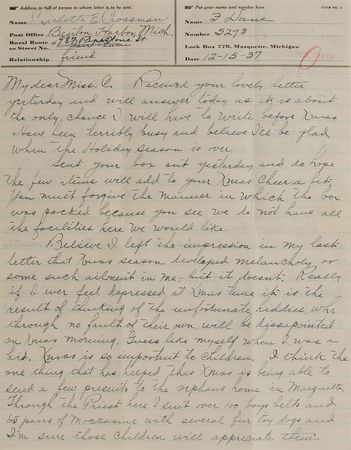 Address in full of person to whom letter is to be sent.
Put your name and number below.
FORM NO. 3
Name Carlotte E Crossman
Name F Dune
Post Office Benton Harbor, Mich.
Number 5293
Rural Route or Street No. 987 Pipestone St
Lock Box 779, Marquette, Michigan
Relationship friend
Date 12-15-37
My dear Miss. C. Received your lovely letter
yesterday and will answer today as it is about
the only chance I will have to write before Xmas
Have been terribly busy and believe I'll be glad
when the Holiday season is over.
Sent your box out yesterday and do hope
the few items will add to your Xmas cheer a bit.
You must forgive the manner in which the box
was packed because you see we do not have all
the facilities here we would like.
Believe I left the impression in my last
letter that Xmas season developed melancholy or
some such ailment in me, but it doesnt. Really
if I ever feel depressed at Xmas time it is the
result of thinking of the unfortunate kiddies, who
through no fault of their own will be dissapointed
on Xmas morning. Guess like myself when I was a
kid. Xmas is so important to children. I think the
one thing that has helped this Xmas is being able to
send a few presents to the orphans home in Marquette.
Through the Priest here I sent over 100 boys belts and
65 pairs of Moccasins with several fur toy dogs and
I'm sure those children will appreciate them.